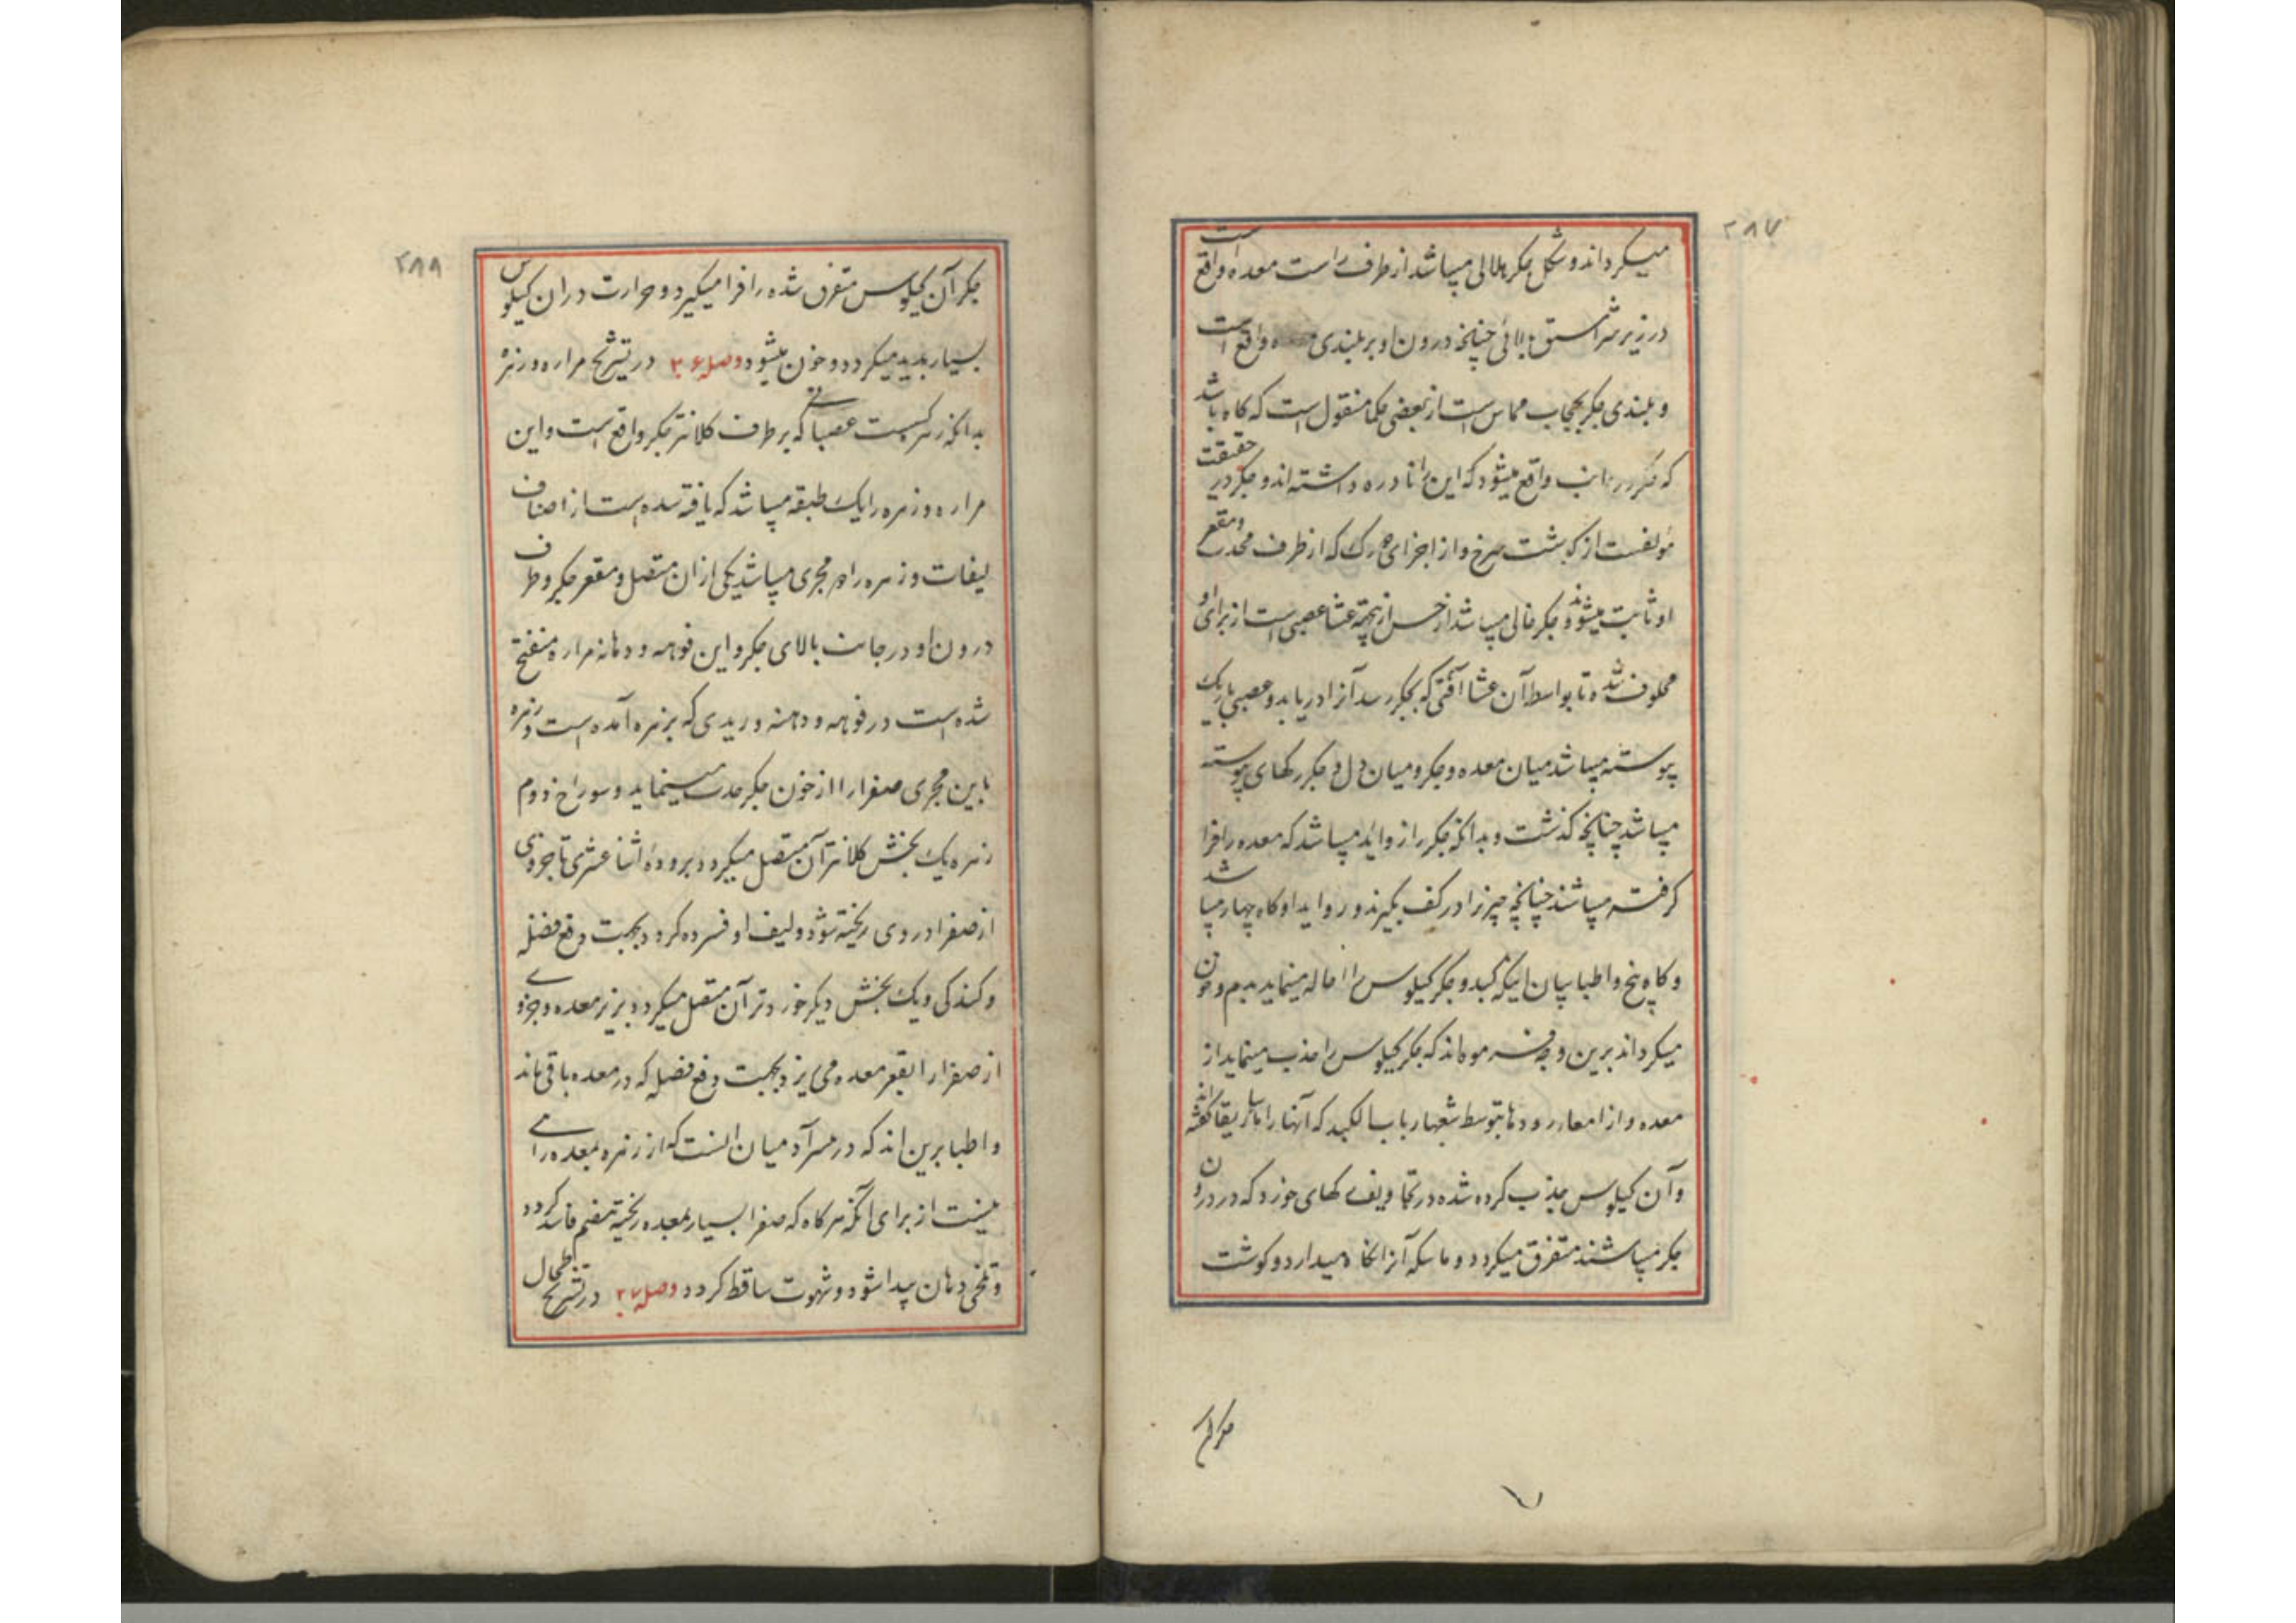 ۲۸۷
میکرداند و شکل جکر هلالی میباشد از طرف راست معده واقع است
در زیر شراسیف بالائی چنانچه درون او بر بلندی واقع است
و بلندی جکر بحجاب مماس است از بعضی حکما منقول است که کاه باشد
که جکر در جانب واقع میشود که این را نادره داشته اند و جکر در حقیقت
مؤلفست از کوشت سرخ و از اجزای رک که از طرف محدب و مقعر
او ثابت میشوند و جکر خالی میباشد از حس از بهر غشا عصبی است از برای او
محلوف شده تا بواسطه آن غشا آفتی که بجکر رسد آنرا دریابد و عصبی باریک
پیوسته میباشد میان معده و جکر و میان دل و جکر رکهای پیوسته
میباشد چنانچه کذشت و بدانکه جکر را زواید میباشد که معده را فرا
کرفته میباشند چنانچه چیز را در کف بکیرند و زواید او کاه چهار میباشد
و کاه پنج و اطبا بیان اینکه کبد و جکر کیلوس را اماله مینماید بدم و خون
میکرداند برین وجه فرموده اند که جکر کیلوس را جذب مینماید از
معده و از امعا و رودها بتوسط شعبهای باب الکبد که آنها را ماساریقا کفته اند
و آن کیلوس جذب کرده شده در تجاویف رکهای خورد که در درون
جکر میباشند متفرق میکردد و ماسکه آنرا نکاه میدارد و کوشت
جکر آن
۲۸۸
جکر آن کیلوس متفرق شده را فرا میکیرد و حرارت دران کیلوس
بسیار پدید میکردد و خون میشود وصل ۲۶ در تشریح مراره و زهره
بدانکه زهره کیسیست عصبانی که بر طرف کلانتر جکر واقع است و این
مراره و زهره را یک طبقه میباشد که بافته شده است از اصناف
لیفات و زهره را دو مجری میباشد یکی ازان متصل و مقعر جکر و طرف
درون او در جانب بالای جکر و این فوهه و دهانه مراره منفتح
شده است در فوهه و دهنه وریدی که بزهره آمده است و زهره
باین مجری صفرا را از خون جکر جذب مینماید و سوراخ دوم
زهره یک بخش کلانتر آن متصل میکردد برودهٔ اثنا عشری تا جزوی
از صفرا در وی ریخته شود و لیف او فسرده کردد بجهت دفع فضله
و کندکی و یک بخش دیکر خوردتر آن متصل میکردد بزیر معده و جزوی
از صفرا را بقعر معده می ریزد بجهت دفع فضله که در معده باقی ماند
و اطبا برین اند که در هر آدمیان انست که از زهره بمعده راهی
نیست از برای آنکه هرکاه که صفرا بسیار بمعده ریخته هضم فاسد کردد
و تلخی دهان پیدا شود و شهوت ساقط کردد وصل ۲۷ در تشریح طحال